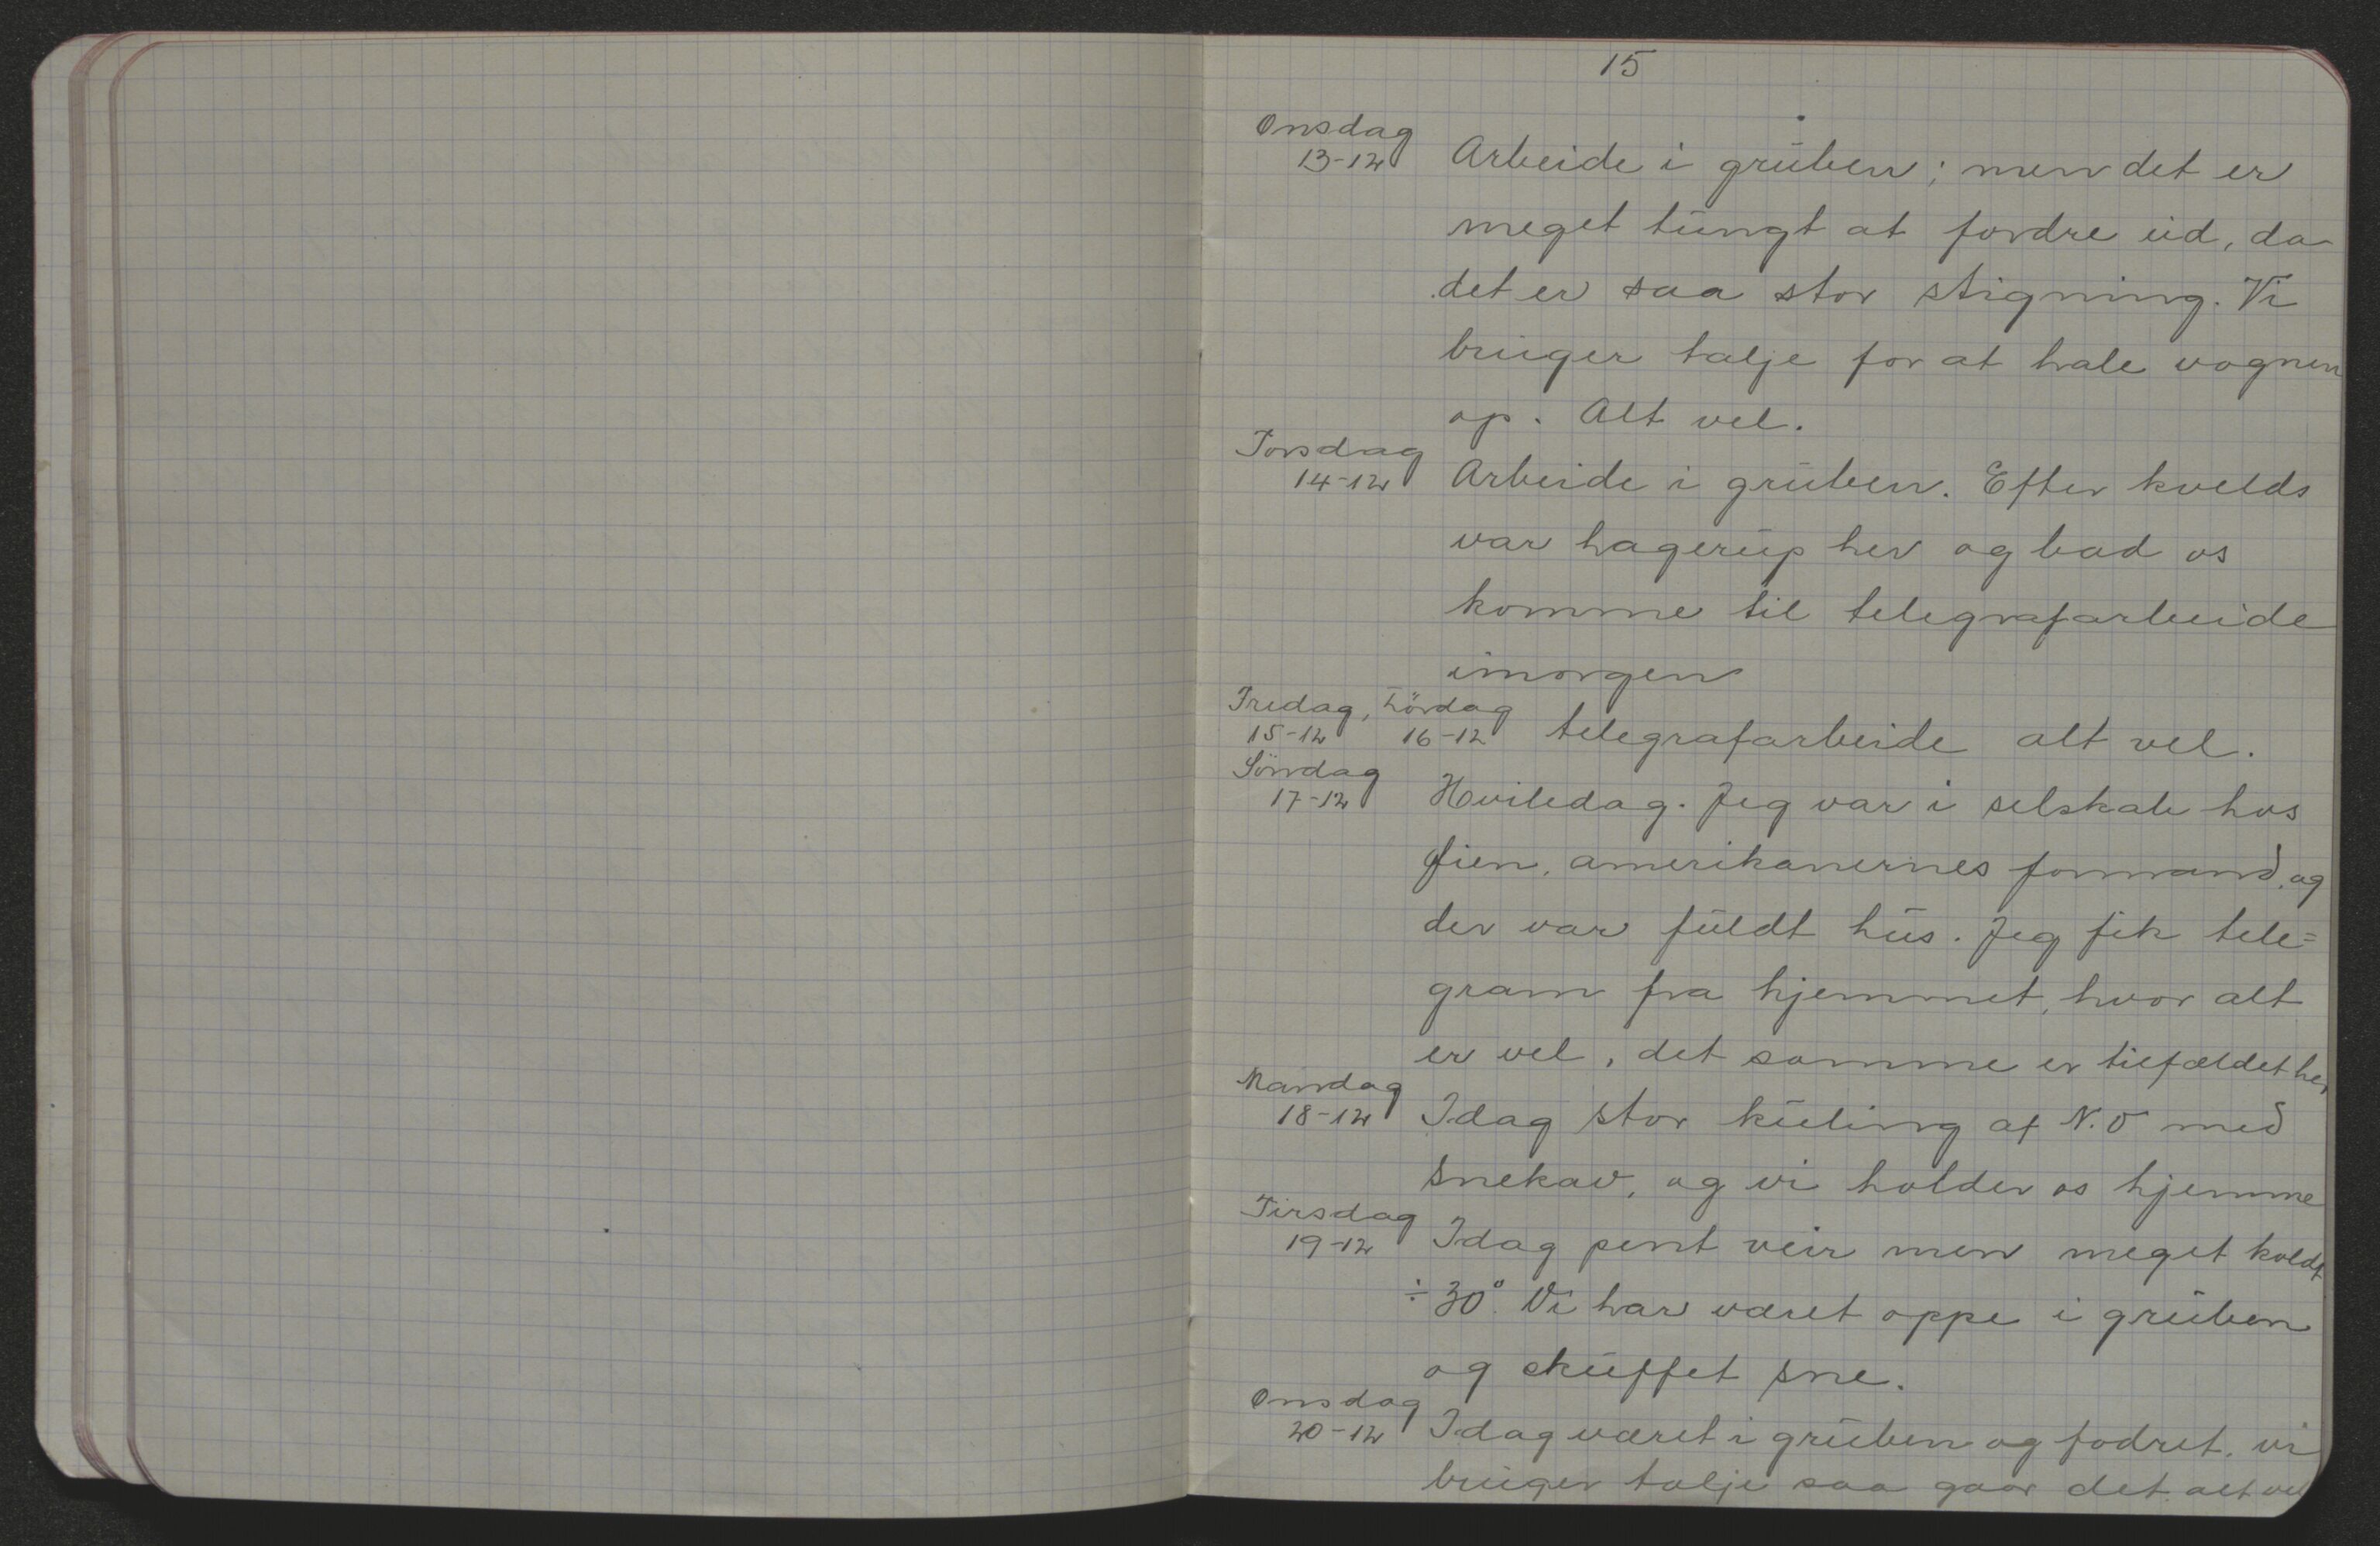 15
Onsdag
13-12 Arbeide i gruben; men det er
meget tungt at fordre ud, da
det er saa stor stigning. Vi
bruger talje for at hale vognen
op. Alt vel.
Torsdag
14-12 Arbeide i gruben. Efter kvelds
var hagerup her og bad os
komme til telegrafarbeide
imorgen
Fredag, Lördag
15-12 16-12 telegrafarbeide alt vel.
Söndag
17-12 Hviledag. Jeg var i selskab hos
amerikanernes formand, og
der var fuldt hus. Jeg fik tele=
gram fra hjemmet, hvor alt
er vel, det samme er tilfældet her
Mandag
18-12 Idag stor kuling af N.O med
snekav, og vi holder os hjemme
Tirsdag
19-12 Idag pent veir men meget koldt
÷30° Vi har været oppe i gruben
og skuffet sne.
Onsdag
20-12 Idag været i gruben og fodret. vi
bruger talje saa gaar det. alt vel